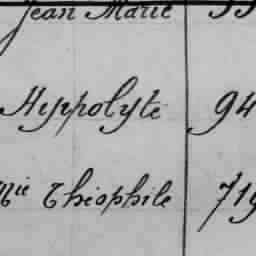 Jean Marie
Hyppolyte 94
Mie Théophile 719